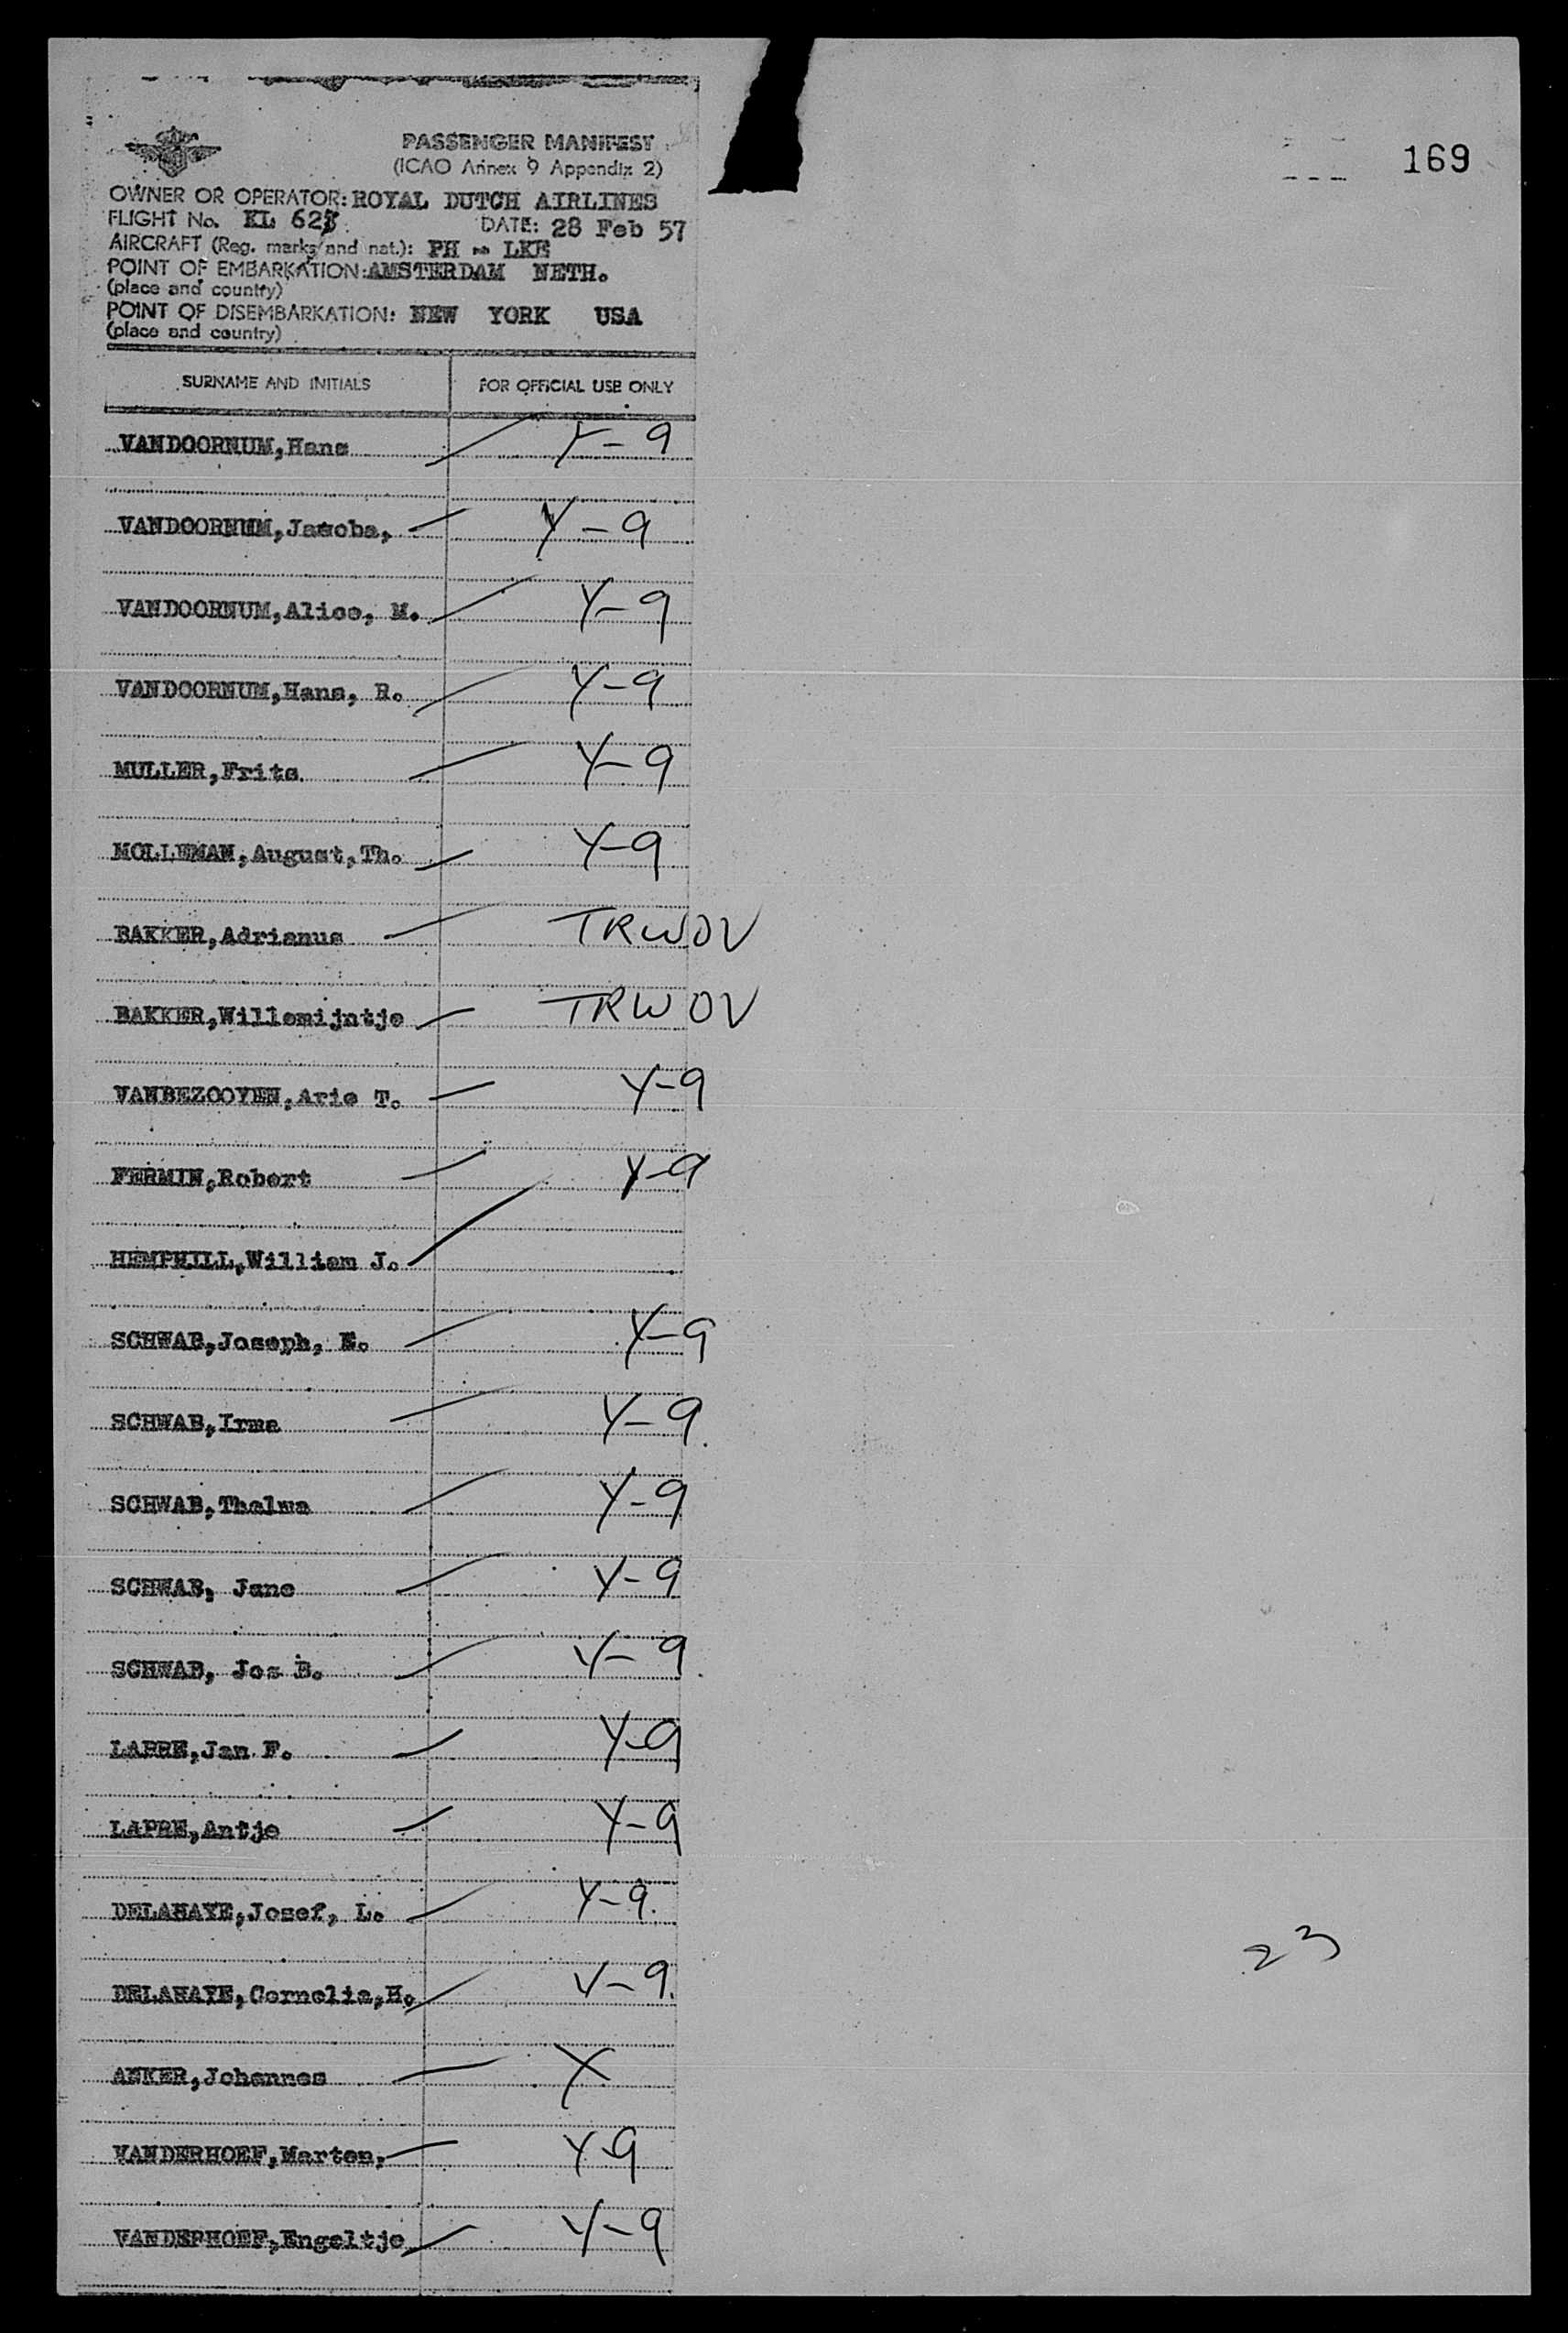 169
PASSENGER MANIFEST
(ICAO Annex 9 Appendix 2)
OWNER OR OPERATOR: ROYAL DUTCH AIRLINES
FLIGHT No. KL 623 DATE: 28 Feb 57
AIRCRAFT (Reg. marks and nat.): PH - LKE
POINT OF EMBARKATION: AMSTERDAM NETH.
(place and country)
POINT OF DISEMBARKATION: NEW YORK USA
(place and country)
SURNAME AND INITIALS FOR OFFICIAL USE ONLY
VANDOORNUM,Hans Y-9
VANDOORNUM,Jacoba, Y-9
VANDOORNUM,Alice, M. Y-9
VANDOORNUM,Hans, R. Y-9
MULLER,Frits Y-9
MOLLEMAN,August,Th. Y-9
BAKKER,Adrianus TRWOV
BAKKER,Willemijntje TRWOV
VANBEZOOYEN,Arie T. Y-9
FERMIN,Robert Y-9
HEMPHILL,William J.
SCHWAB,Joseph, E. Y-9
SCHWAB,Irma Y-9
SCHWAB,Thelma Y-9
SCHWAB, Jane Y-9
SCHWAB, Jos B. Y-9
LAPRE,Jan F. Y-9
LAPRE,Antje Y-9
DELAHAYE,Josef, L. Y-9.
DELAHAYE,Cornelia,H. Y-9.
23
ANKER,Johannes X
VANDERHOEF,Marten, Y-9
VANDERHOEF,Engeltje Y-9